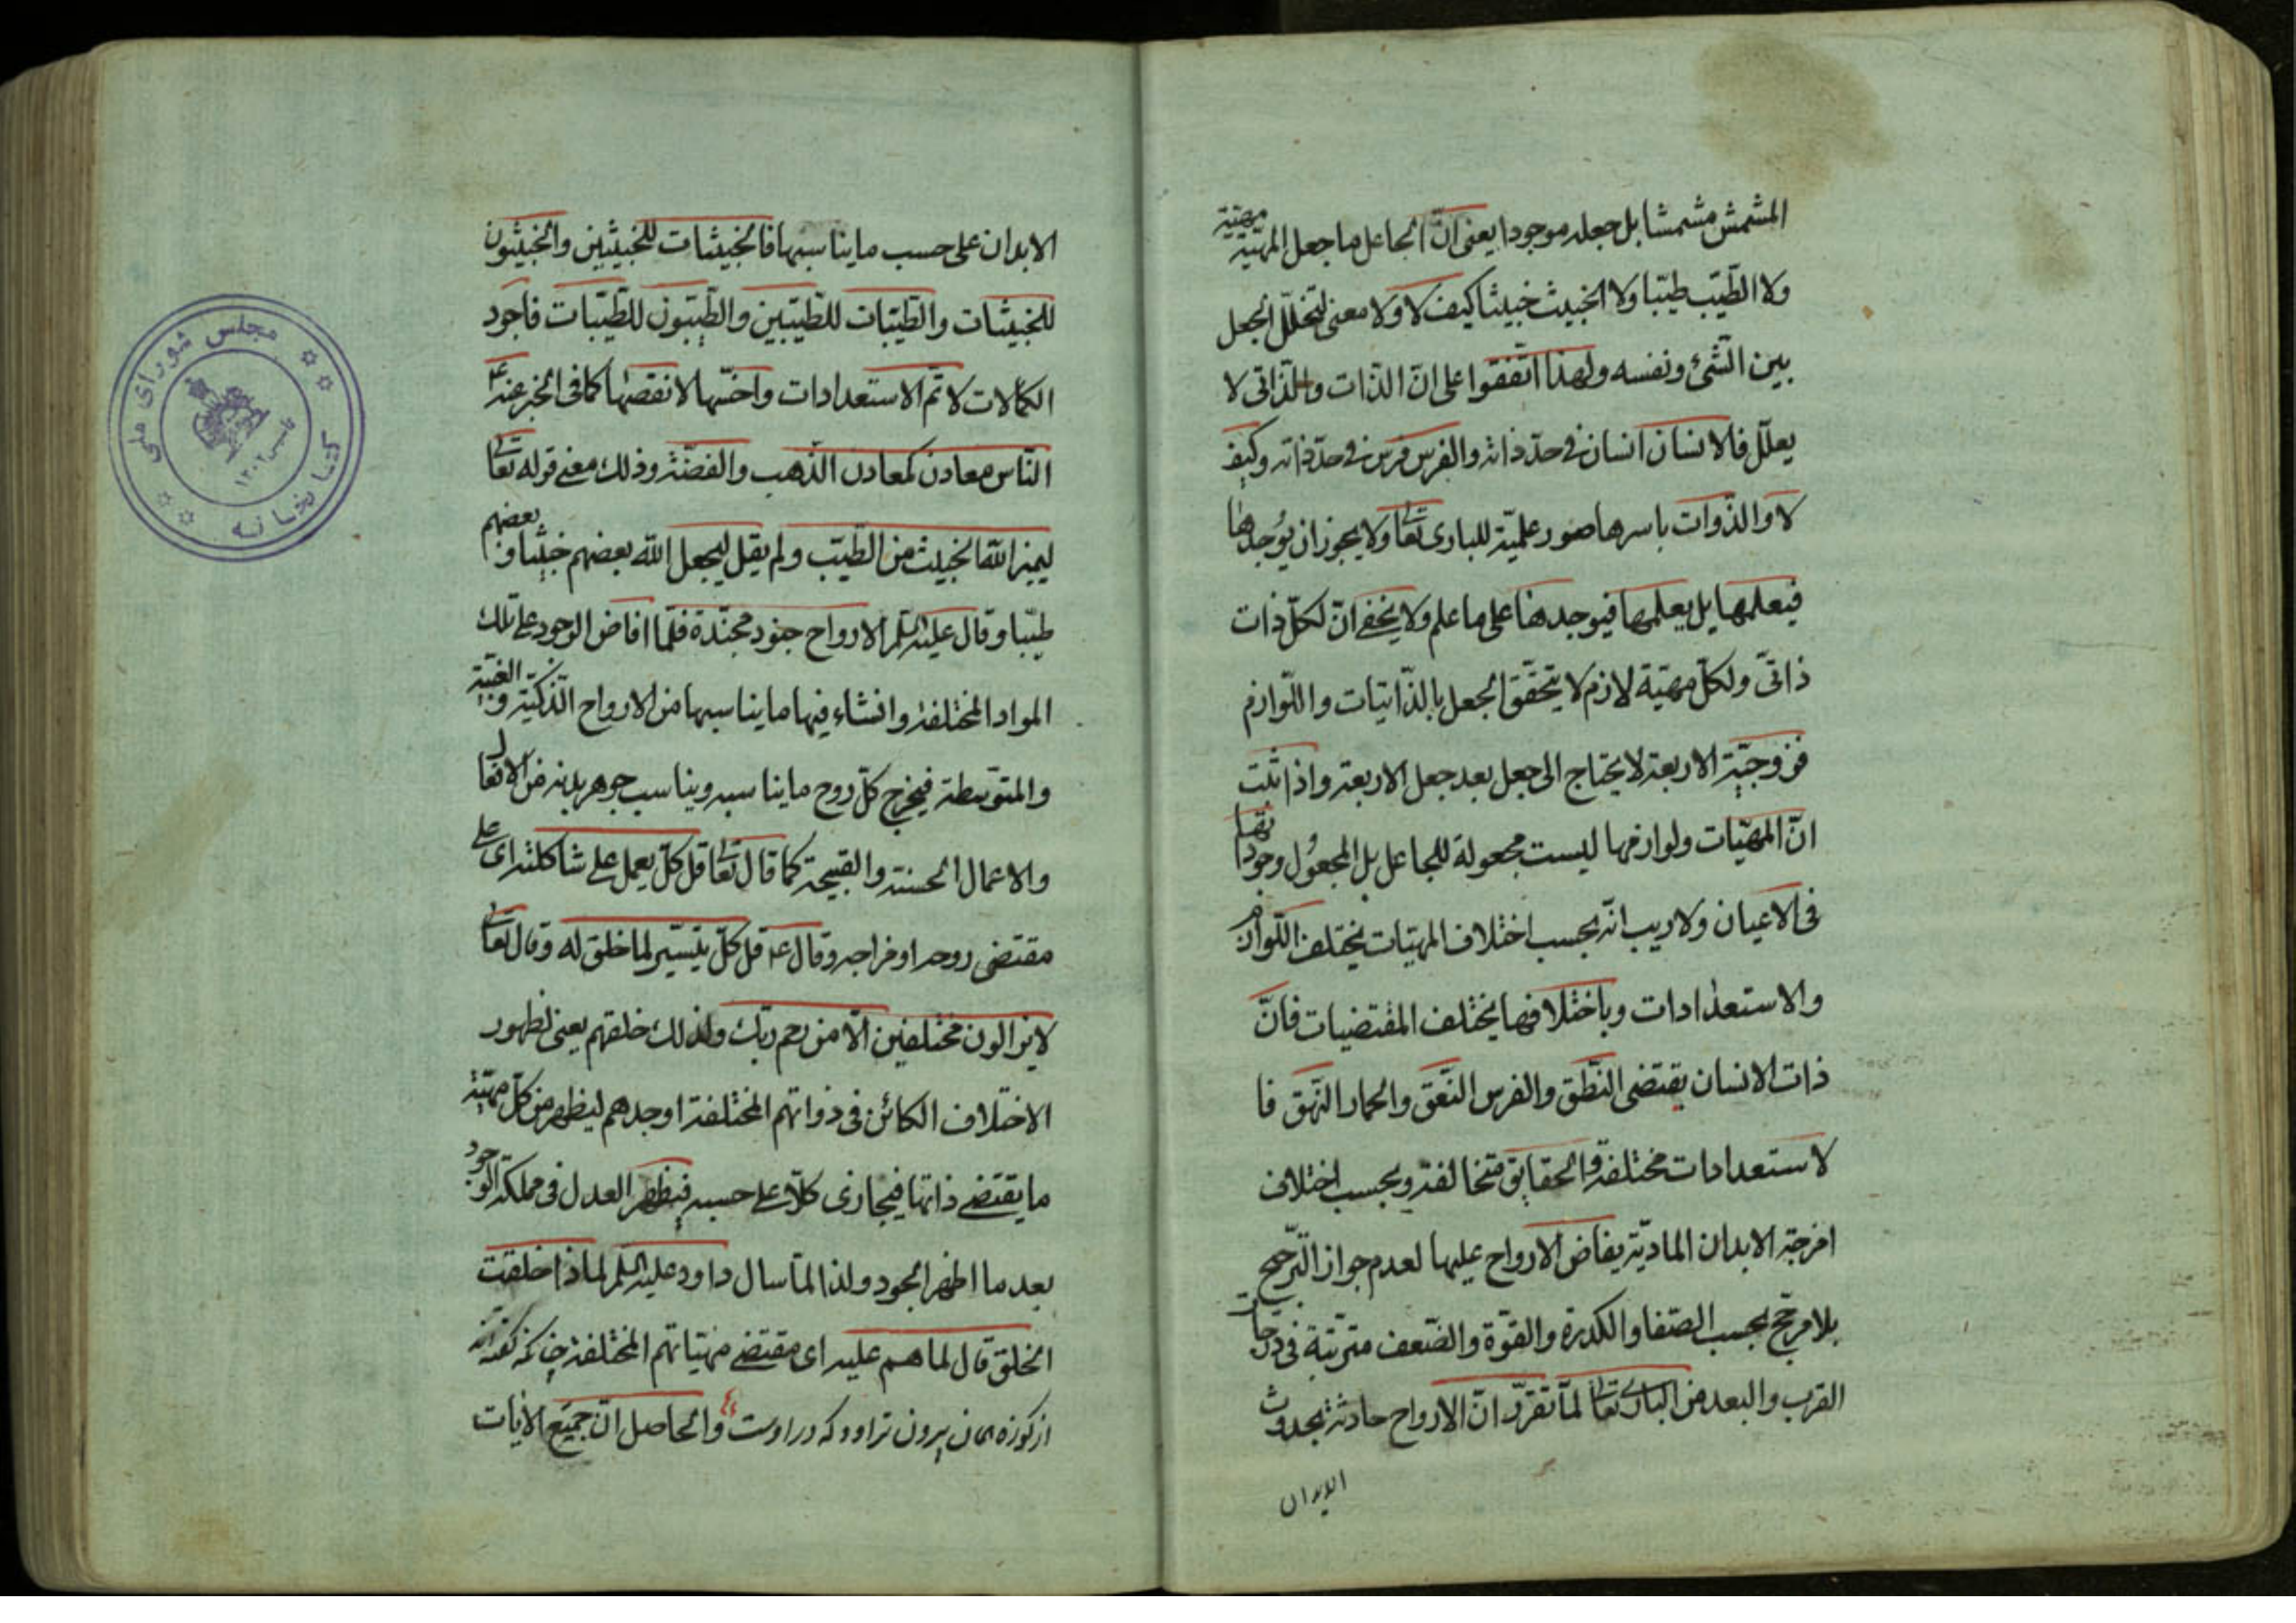 المشمش مشمشا بل جعله موجودا يعنى انّ الجاعل ما جعل المهيّة مهيّة
ولا الطّيّب طيّبا ولا الخبيث خبيثا كيف لا ولا معنى لتخلّل الجعل
بين الشّئ ونفسه ولهذا اتّفقوا على انّ الذّات والذّاتى لا
يعلّل فالانسان انسان فى حدّ ذاته والفرس فرس فى حدّ ذاته وكيف
لا والذّوات باسرها صور علميّة للبارى تعالى ولا يجوز ان يوجدها
فيعلمها بل يعلمها فيوجدها على ما علم ولا يخفى انّ لكلّ ذات
ذاتىّ ولكلّ مهيّة لازم لا يتحقّق الجعل بالذّاتيات واللّوازم
فزوجيّة الاربعة لا يحتاج الى جعل بعد جعل الاربعة واذا ثبت
انّ المهيّات ولوازمها ليست مجعولة للجاعل بل المجعول وجوداتها
فى الاعيان ولا ريب انّه بحسب اختلاف المهيّات يختلف اللّوازم
والاستعدادات وباختلافها يختلف المقتضيات فانّ
ذات الانسان يقتضى النّطق والفرس النّعق والحمار النّهق فا
لاستعدادات مختلفة والحقايق متخالفة وبحسب اختلاف
امزجة الابدان الماديّة يفاض الارواح عليها لعدم جواز التّرجيح
بلا مرجّح بحسب الصّفا والكدرة والقوّة والضّعف مترتبة فى درجات
القرب والبعد من البارى تعالى لمّا تقرّر انّ الارواح حادثة بحدوث
الابدان
الابدان على حسب ما يناسبها فالخبيثات للخبيثين والخبيثون
للخبيثات والطّيّبات للطّيّبين والطّيّبون للطّيّبات فاجود
الكمالات لاتمّ الاستعدادات واخسّها لانقصها كما فى الخبر عنه ع
النّاس معادن كمعادن الذّهب والفضّة وذلك معنى قوله تعالى
ليميز اللّه الخبيث من الطّيّب ولم يقل ليجعل اللّه بعضهم خبيثا وبعضهم
طيّبا وقال عليه السلم الارواح جنود مجنّدة فلمّا افاض الوجود على تلك
المواد المختلفة وانشاء فيها ما يناسبها من الارواح الذّكيّة والغبيّة
والمتوسّطة فيخرج كلّ روح ما يناسبه ويناسب جوهر بدنه من الافعال
والاعمال الحسنة والقبيحة كما قال تعالى قل كلّ يعمل على شاكلته اى على
مقتضى روحه او مزاجه وقال ع قل كلّ يتيسّر لما خلق له وقال تعالى
لا يزالون مختلفين الّا من رحم ربّك ولذلك خلقهم يعنى لظهور
الاختلاف الكائن فى ذواتهم المختلفة اوجدهم ليظهر من كلّ مهيّة
ما يقتضى ذاتها فيجازى كلّا على حسبه فيظهر العدل فى مملكة الوجود
بعد ما اظهر الجود ولذا لمّا سال داود عليه السلم لماذا خلقت
الخلق قال لما هم عليه اى مقتضى مهيّاتهم المختلفة چنانكه گفته اند
از كوزه همان برون تراود كه در اوست والحاصل انّ جميع الايات
مجلس شوراى ملى
كتابخانه
تاسيس ١٣٠٢